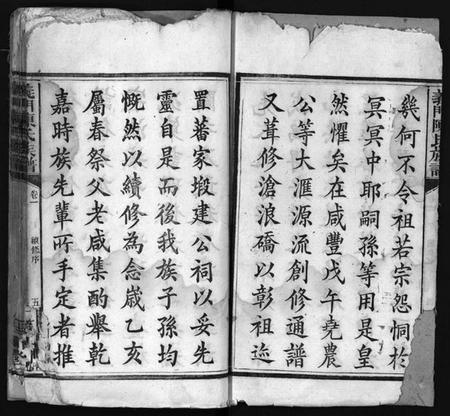 義門陳氏族譜
幾何不令祖若宗怨恫於
冥冥中耶嗣孫等用是皇
然懼矣在咸豐戊午堯農
公等大滙源流創修通譜
又葺修滄浪礄以彰祖迹
置蕃家塅建公祠以妥先
靈自是而後我族子孫均
慨然以續修為念嵗乙亥
屬春祭父老咸集酌舉乾
嘉時族先輩所手定者推
義門陳氏族譜
卷一
續修序
五